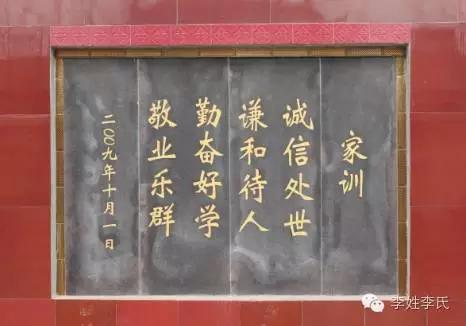 家训
诚信处世
谦和待人
勤奋好学
敬业乐群
二〇〇九年十月一日
李姓李氏